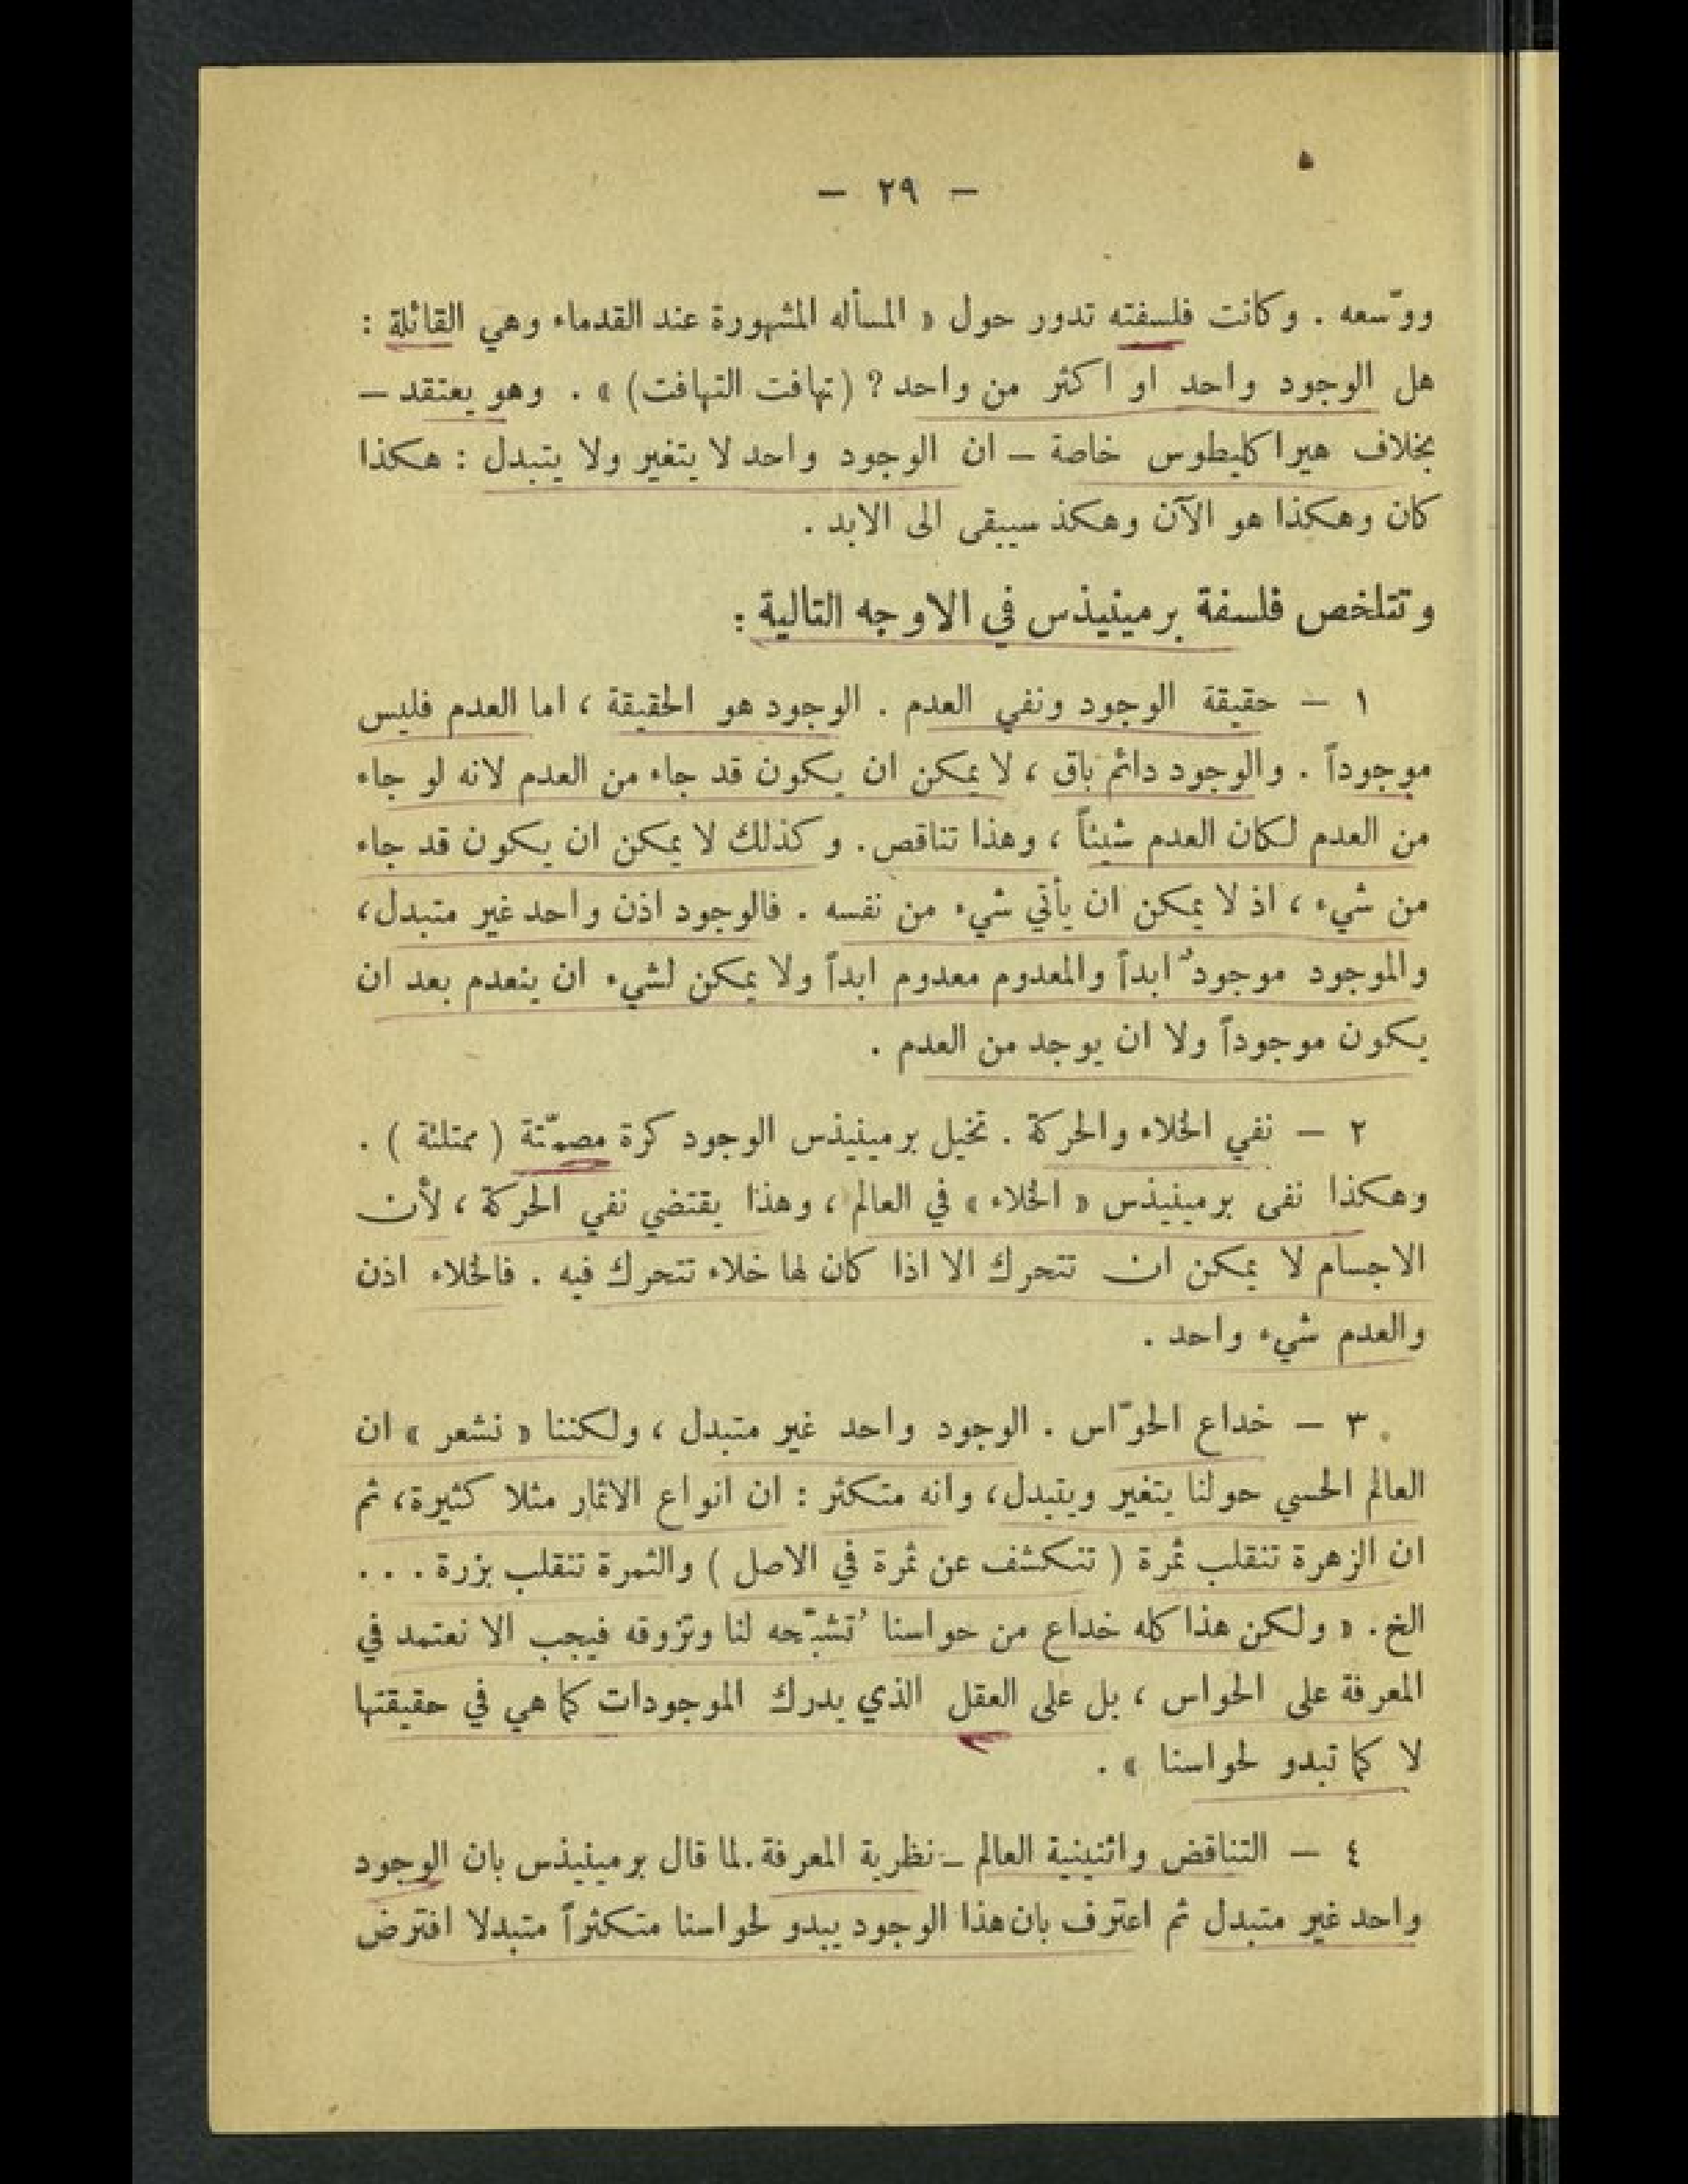 — ٢٩ —
ووسّعه . وكانت فلسفته تدور حول « المسأله المشهورة عند القدماء وهي القائلة :
هل الوجود واحد او اكثر من واحد ? (تهافت التهافت) » . وهو يعتقد —
بخلاف هيراكليطوس خاصة — ان الوجود واحد لا يتغير ولا يتبدل : هكذا
كان وهكذا هو الآن وهكذ سيبقى الى الابد .
وتتلخص فلسفة برمينيذس في الاوجه التالية :
١ — حقيقة الوجود ونفي العدم . الوجود هو الحقيقة ، اما العدم فليس
موجوداً . والوجود دائم باق ، لا يمكن ان يكون قد جاء من العدم لانه لو جاء
من العدم لكان العدم شيئاً ، وهذا تناقص . وكذلك لا يمكن ان يكون قد جاء
من شيء ، اذ لا يمكن ان يأتي شيء من نفسه . فالوجود اذن واحد غير متبدل ،
والموجود موجودٌ ابداً والمعدوم معدوم ابداً ولا يمكن لشيء ان ينعدم بعد ان
يكون موجوداً ولا ان يوجد من العدم .
٢ — نفي الخلاء والحركة . تخيل برمينيذس الوجود كرة مصمّتة ( ممتلئة ) .
وهكذا نفى برمينيذس « الخلاء » في العالم ، وهذا يقتضي نفي الحركة ، لأن
الاجسام لا يمكن ان تتحرك الا اذا كان لها خلاء تتحرك فيه . فالخلاء اذن
والعدم شيء واحد .
٣ — خداع الحوّاس . الوجود واحد غير متبدل ، ولكننا « نشعر » ان
العالم الحسي حولنا يتغير ويتبدل ، وانه متكثر : ان انواع الاثمار مثلا كثيرة ، ثم
ان الزهرة تنقلب ثمرة ( تنكشف عن ثمرة في الاصل ) والثمرة تنقلب بزرة . . .
الخ . « ولكن هذا كله خداع من حواسنا تُشبّحه لنا وتزوقه فيجب الا نعتمد في
المعرفة على الحواس ، بل على العقل الذي يدرك الموجودات كما هي في حقيقتها
لا كما تبدو لحواسنا » .
٤ — التناقض واثنينية العالم — نظرية المعرفة . لما قال برمينيذس بان الوجود
واحد غير متبدل ثم اعترف بان هذا الوجود يبدو لحواسنا متكثراً متبدلا افترض